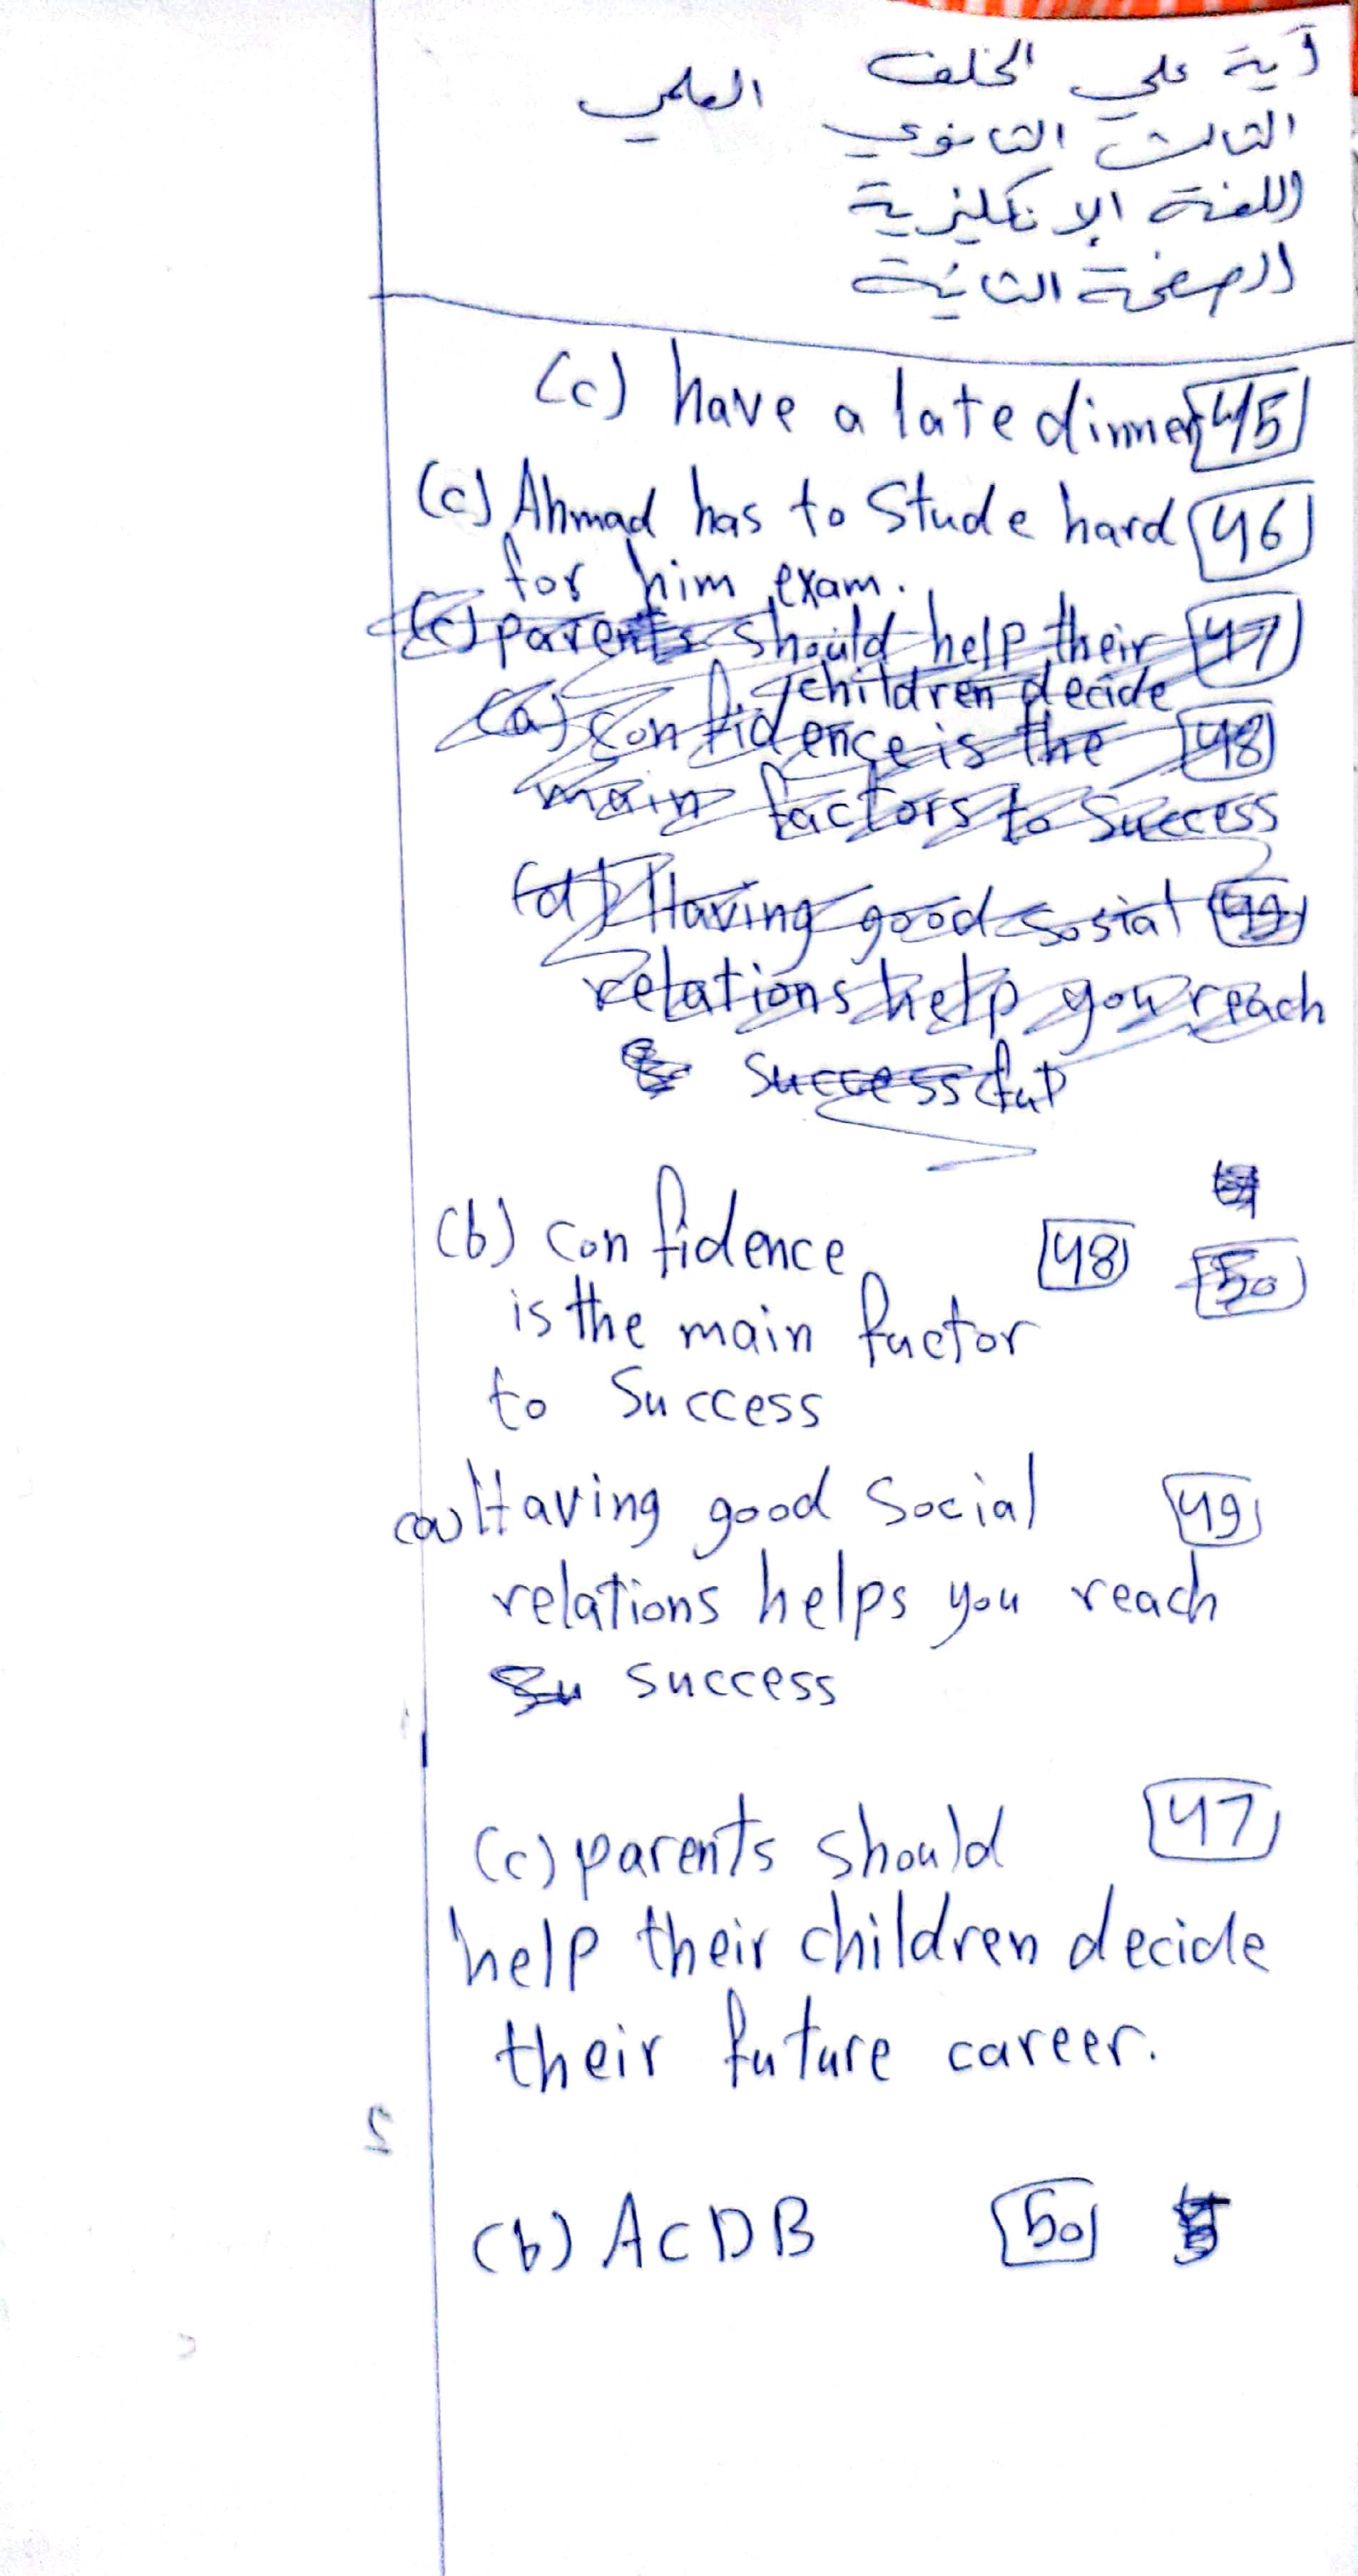 آية علي الخلف العلمي
الثالث الثانوي
اللغة الإنكليزية
الصفحة الثانية
(c) have a late dinner 45
(c) Ahmad has to Stude hard 46
for him exam.
(c) parents should help their 47
children decide
(a) confidence is the 48
main factors to Success
(d) Having good sosial 49
relations help you reach
Successful
(b) confidence 48 50
is the main factor
to Success
(a) Having good Social 49
relations helps you reach
Su success
(c) parents should 47
help their children decide
their future career.
(b) ACDB 50